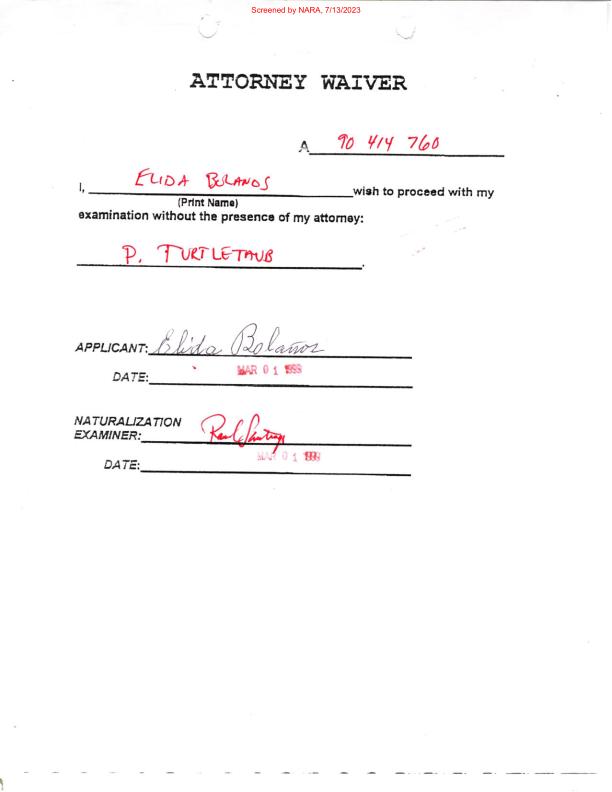 Screened by NARA, 7/13/2023
ATTORNEY WAIVER
A 90 414 760
I, ELIDA BOLANOS wish to proceed with my
(Print Name)
examination without the presence of my attorney:
P. TURTLETAUB.
APPLICANT: Elida Bolaños
DATE: MAR 01 1999
NATURALIZATION
EXAMINER:
DATE: MAR 01 1999